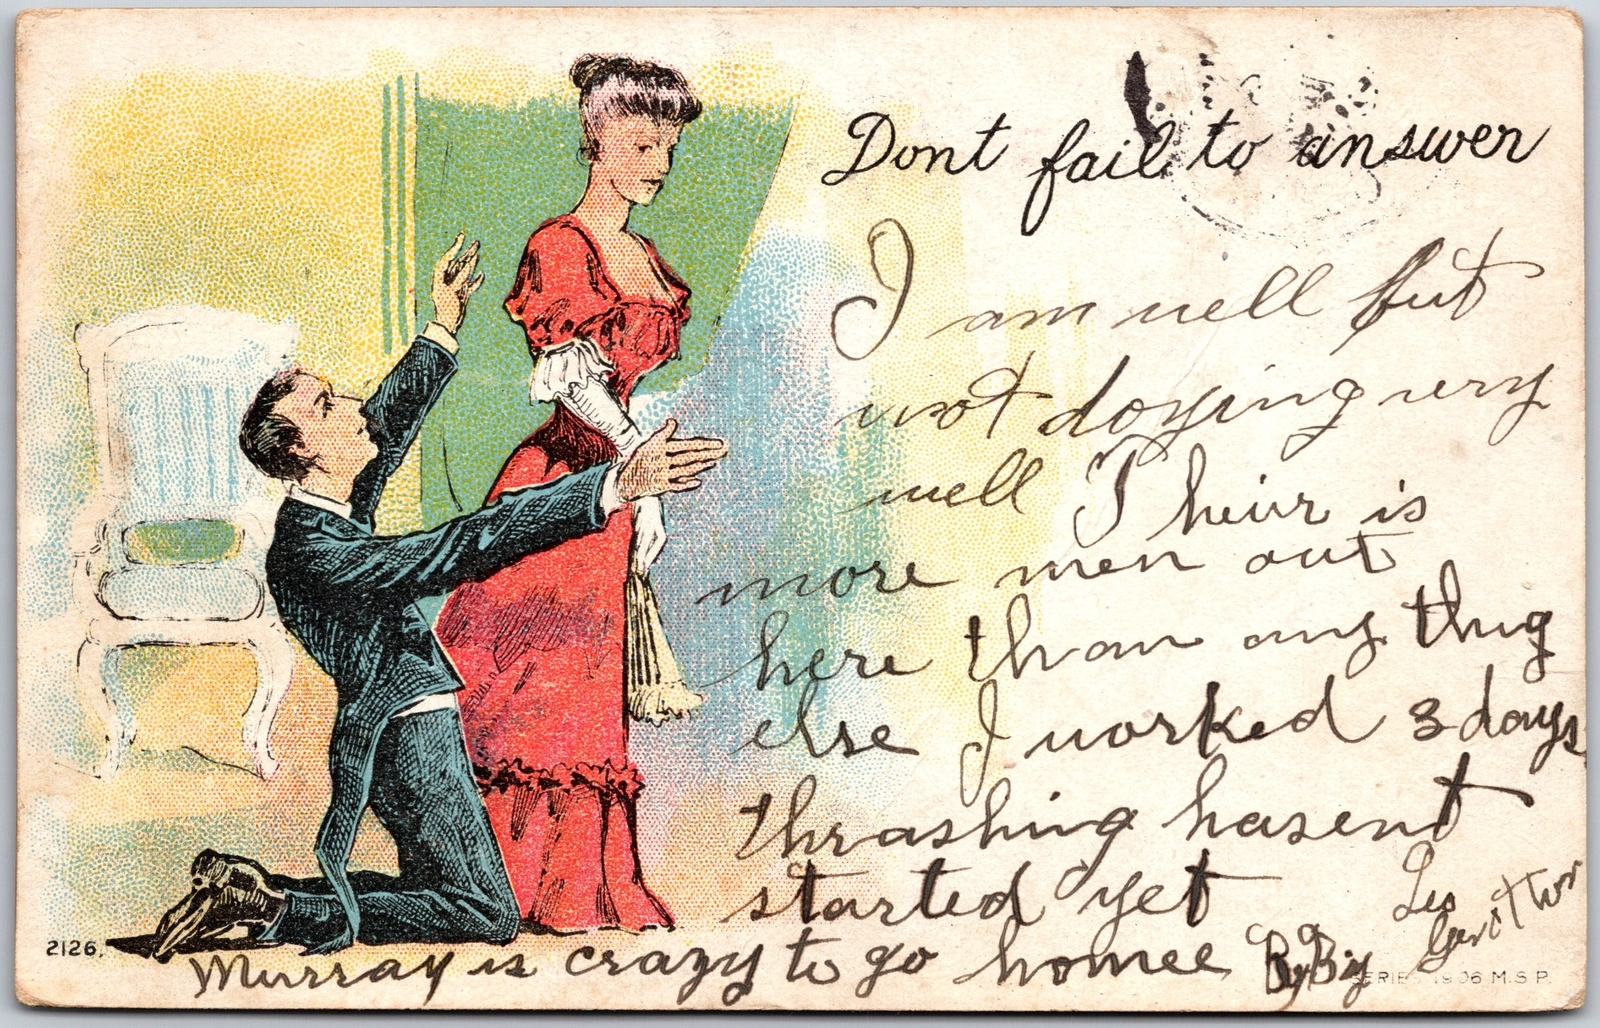 Dont fail to answer
I am well but
not doying very
well I heir is
more men out
here than any thig
else I worked 3 days
thrashing hasent
started yet
Murray is crazy to go homee By By
Leo
2126.
SERIES 1906 M.S.P.